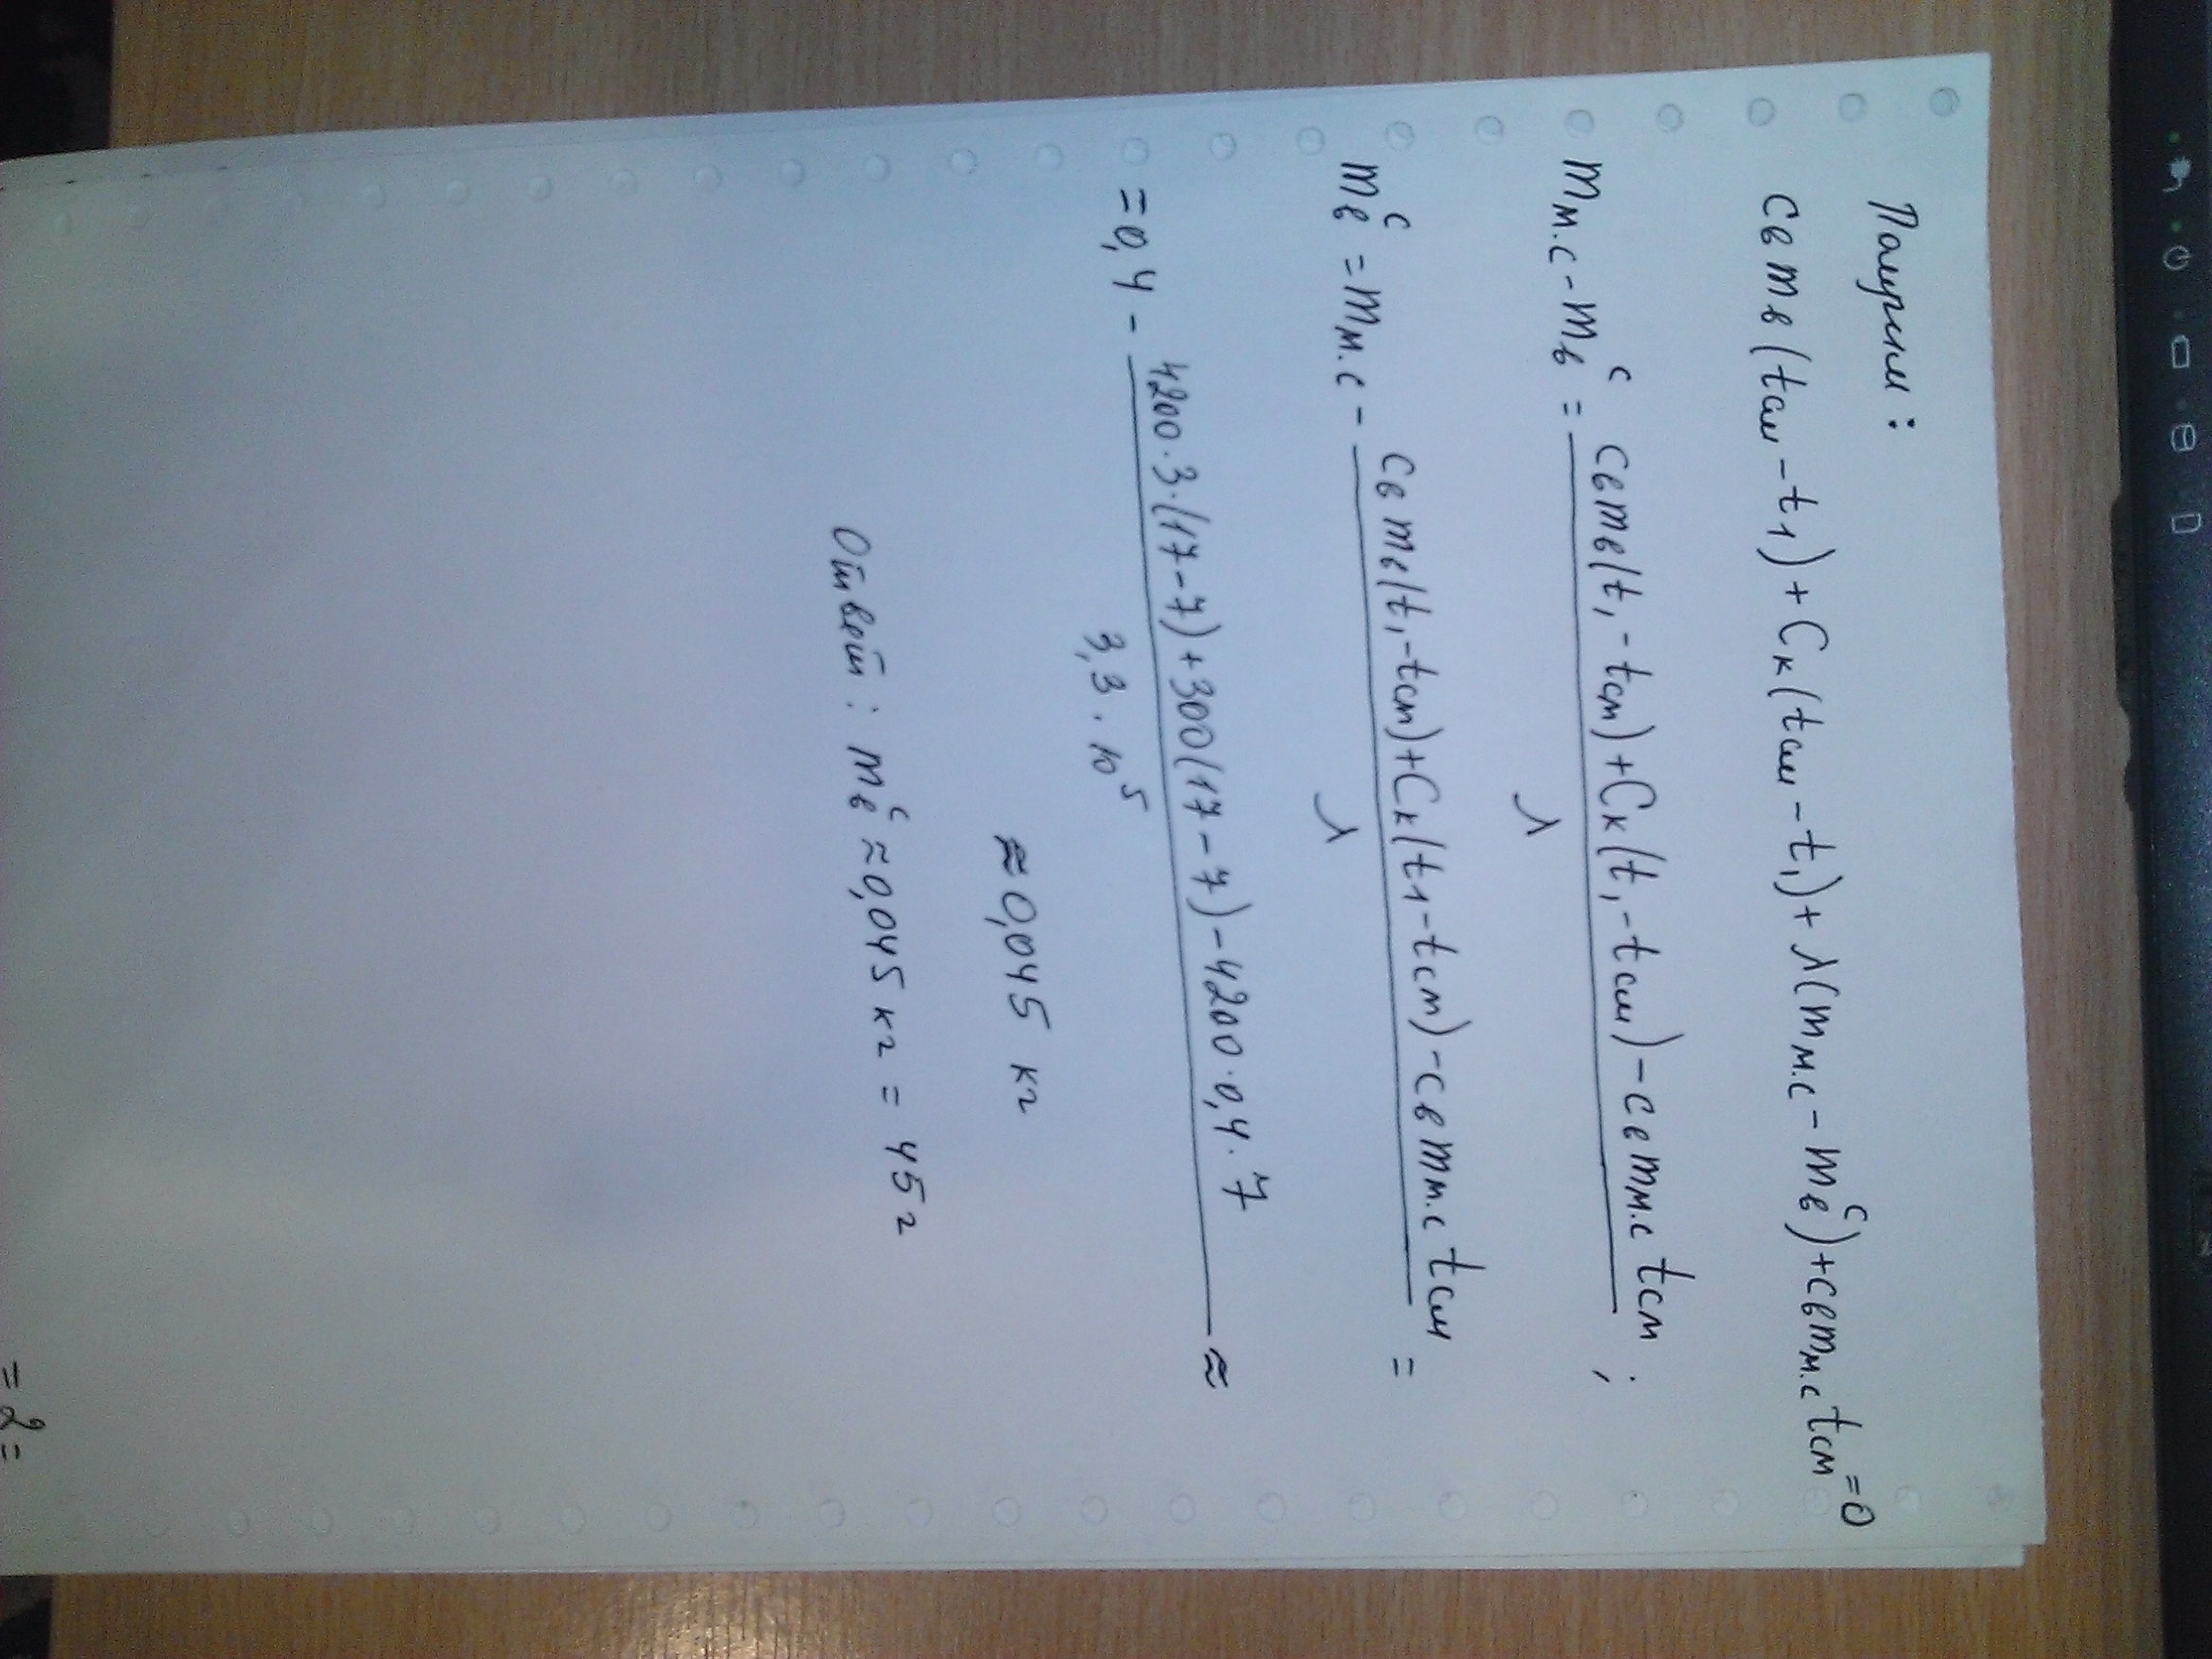 Получим:
cв mв (tсм - t1) + Cк (tсм - t1) + λ(mм.с - mв^с) + cв mм.с tсм = 0
mм.с - mв^с = (cв mв (t1 - tсм) + Cк (t1 - tсм) - cв mм.с tсм) / λ ;
mв^с = mм.с - (cв mв (t1 - tсм) + Cк (t1 - tсм) - cв mм.с tсм) / λ =
= 0,4 - (4200 · 3 · (17 - 7) + 300 (17 - 7) - 4200 · 0,4 · 7) / (3,3 · 10^5) ≈
≈ 0,045 кг
Ответ: mв^с ≈ 0,045 кг = 45 г
= 2 =